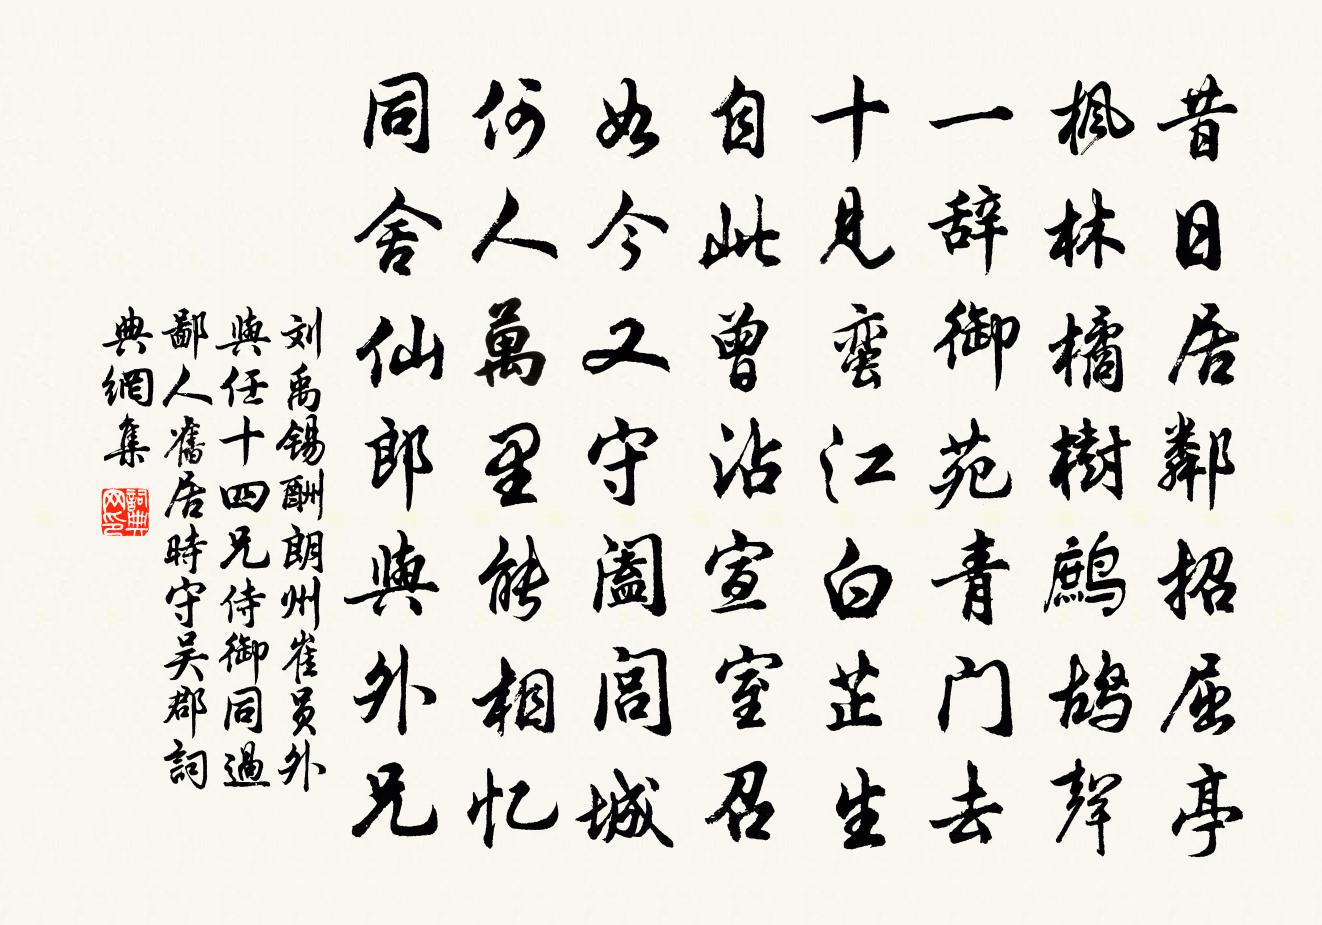 昔日居鄰招屈亭
枫林橘樹鷓鸪聲
一辞御苑青门去
十见蛮江白芷生
自此曾沾宣室召
如今又守阖闾城
何人萬里能相忆
同舍仙郎與外兄
刘禹锡酬朗州崔员外
與任十四兄侍御同過
鄙人舊居時守吴郡詞
典網集
詞典
网印